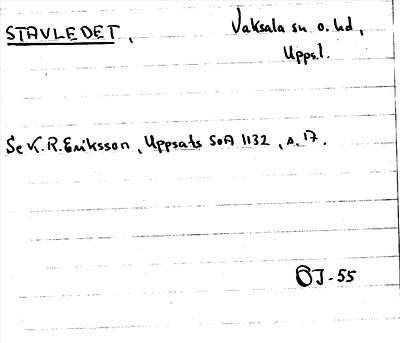 STAVLEDET, Vaksala sn o. hd,
Uppl.
Se K. R. Eriksson, Uppsats SOA 1132, s. 17.
ÖJ-55